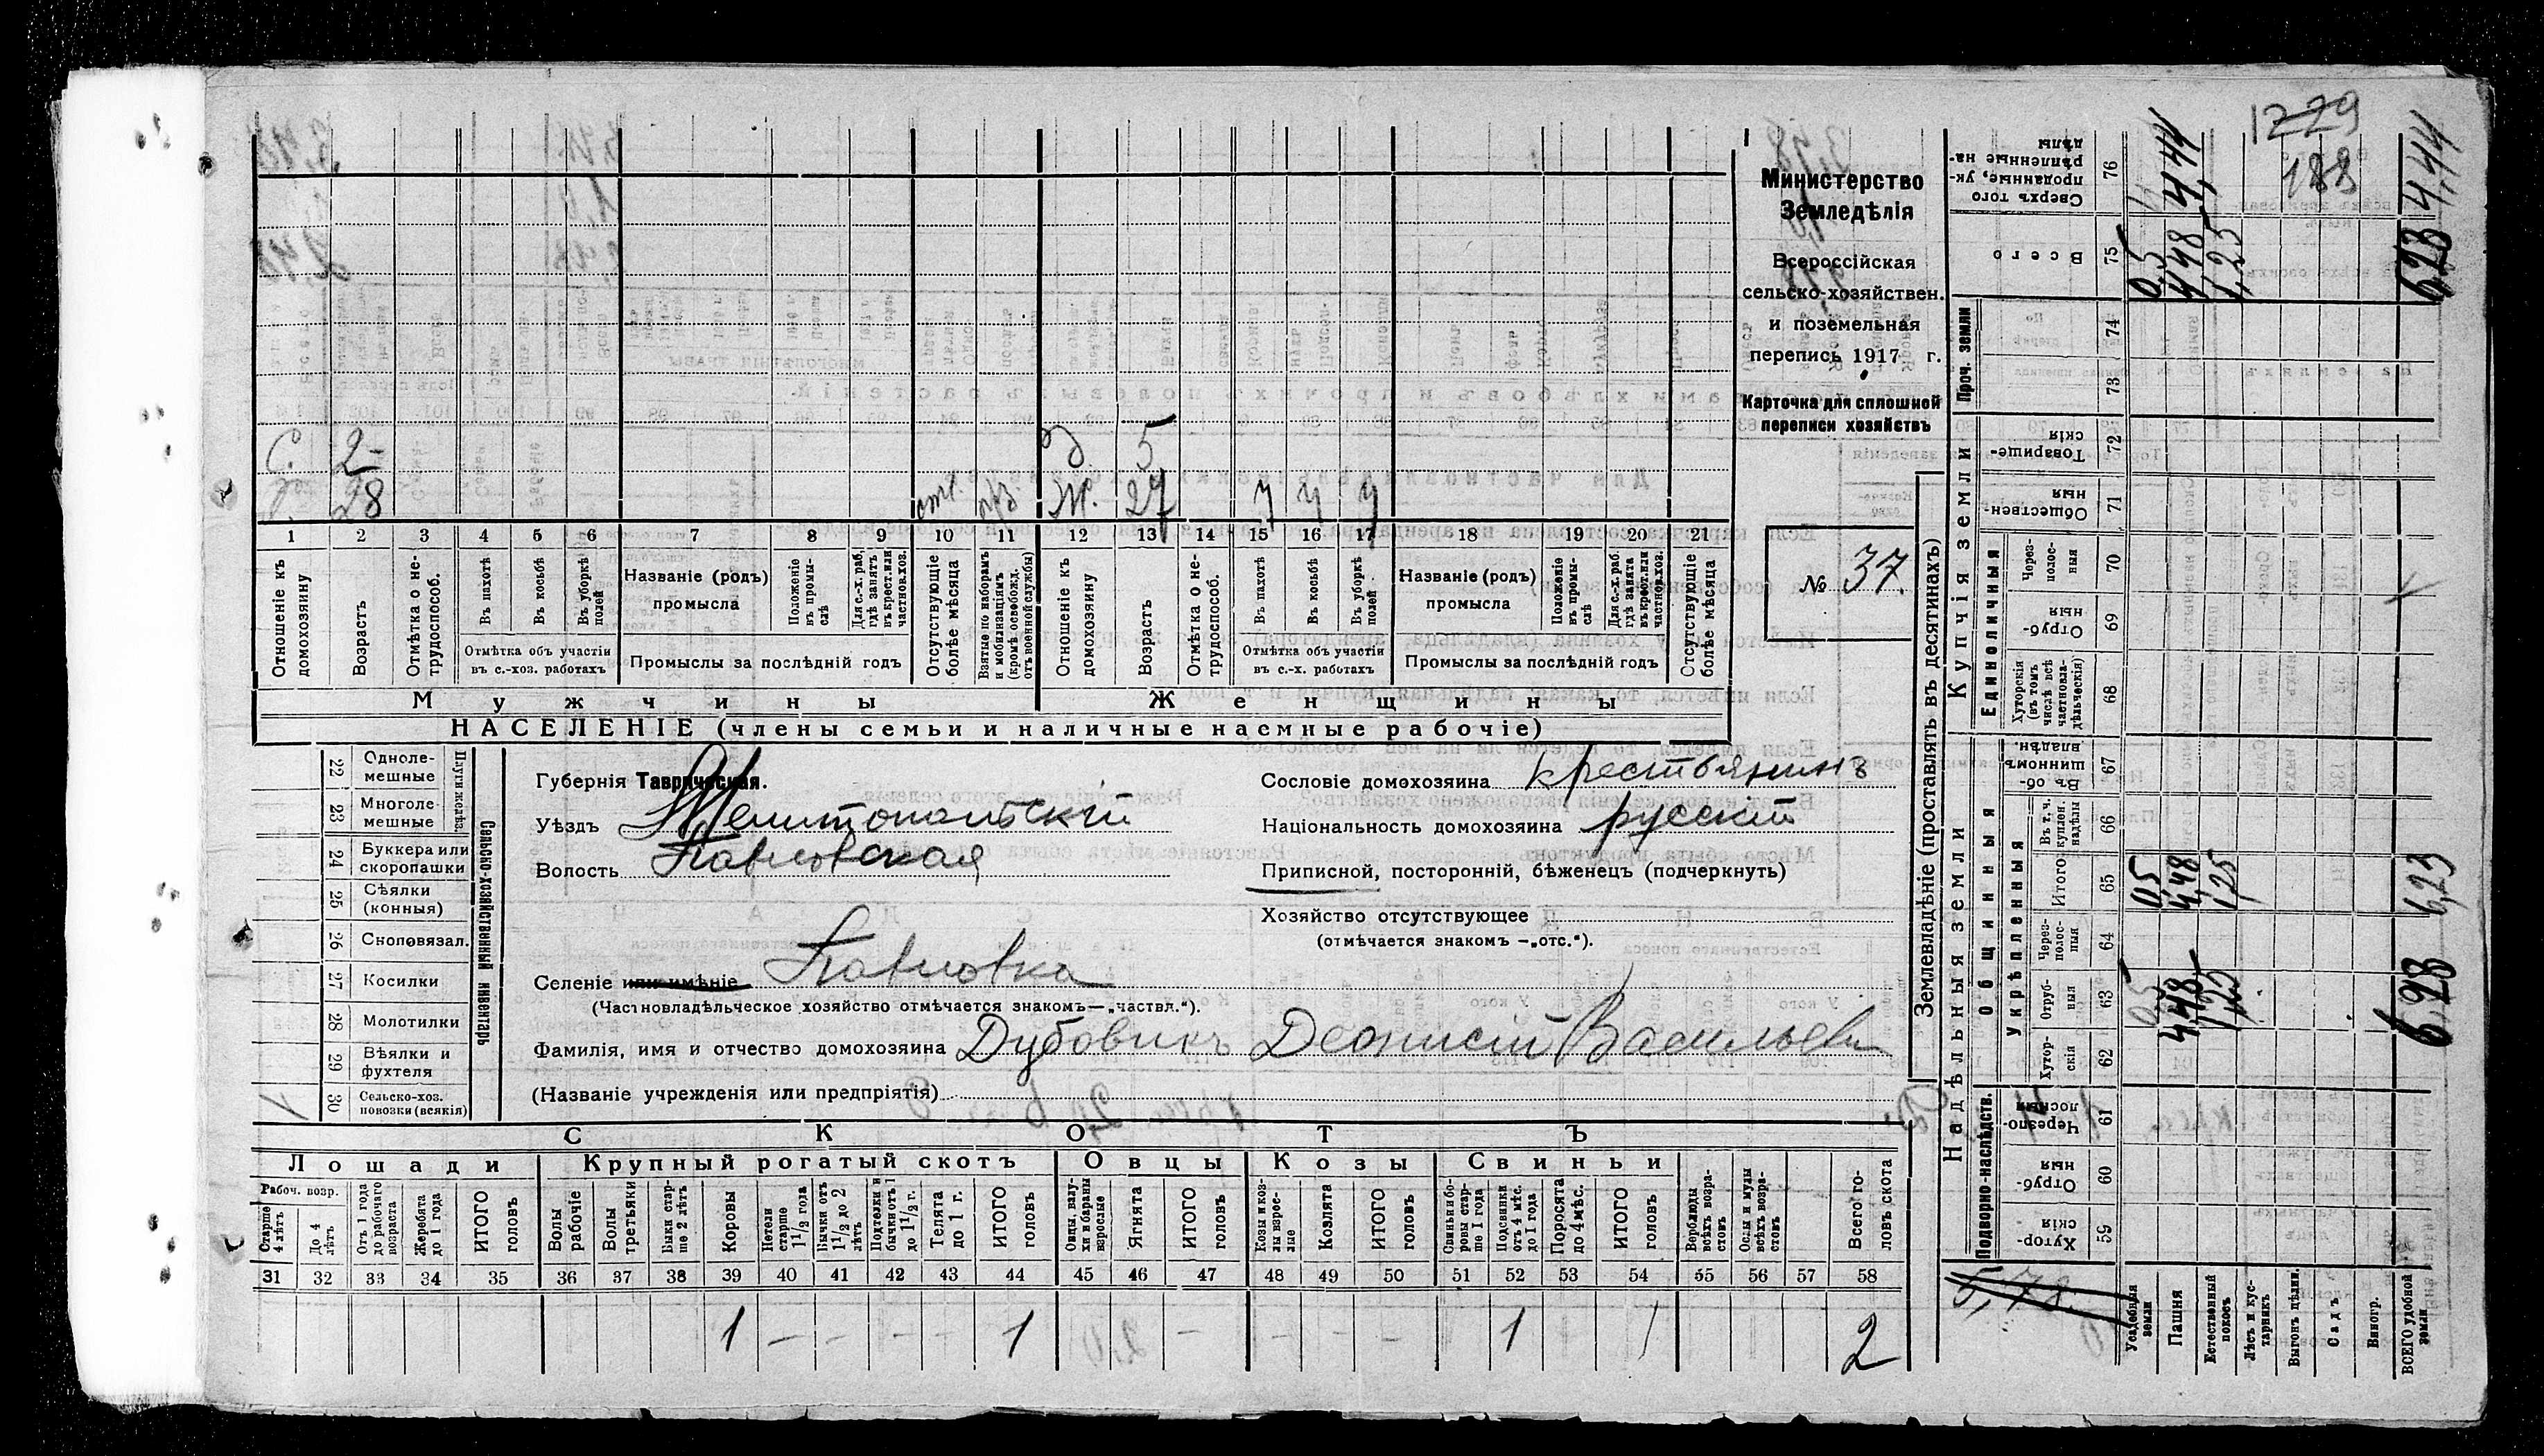 Министерство
Земледѣлія
Всероссійская
сельско-хозяйствен.
и поземельная
перепись 1917 г.
Карточка для сплошной
переписи хозяйствъ
№ 37.
1279
188
С. 2
28
отс.
Д. 5
Ж. 27 у у у
1 2 3 4 5 6 7 8 9 10 11 12 13 14 15 16 17 18 19 20 21
Отношеніе къ домохозяину
Возрастъ
Отмѣтка о не-трудоспособ.
Въ пахотѣ
Въ косьбѣ
Въ уборкѣ полей
Отмѣтка объ участіи въ с.-хоз. работахъ
Названіе (родъ) промысла
Положеніе въ промы-слѣ
Для с.-х. раб, гдѣ занятъ въ крест. или частнов. хоз.
Промыслы за послѣдній годъ
Отсутствующіе болѣе мѣсяца
Взятые по наборамъ и мобилизаціямъ (кромѣ освобожд. отъ военной службы)
Отношеніе къ домохозяину
Возрастъ
Отмѣтка о не-трудоспособ.
Въ пахотѣ
Въ косьбѣ
Въ уборкѣ полей
Отмѣтка объ участіи въ с.-х. работахъ
Названіе (родъ) промысла
Положеніе въ промы-слѣ
Для с.-х. раб. гдѣ занята въ крест. или частнов. хоз.
Промыслы за послѣдній годъ
Отсутствующіе болѣе мѣсяца
Мужчины Женщины
НАСЕЛЕНІЕ (члены семьи и наличные наемные рабочіе)
22 Одноле-мешные
23 Многоле-мешные
Плуги желѣз.
24 Буккера или скоропашки
25 Сѣялки (конныя)
26 Сноповязал.
27 Косилки
28 Молотилки
29 Вѣялки и фухтеля
30 Сельско-хоз. повозки (всякія)
Сельско-хозяйственный инвентарь
Губернія Таврическая.
Уѣздъ Мелитопольскій
Волость Павловская
Селеніе или имѣніе Павловка
(Частновладѣльческое хозяйство отмѣчается знакомъ—„частвл.“).
Фамилія, имя и отчество домохозяина Дубовикъ Деонисій Васильев
(Названіе учрежденія или предпріятія)
Сословіе домохозяина крестьянинъ
Національность домохозяина русскій
Приписной, посторонній, бѣженецъ (подчеркнуть)
Хозяйство отсутствующее
(отмѣчается знакомъ —„отс.“).
СКОТЪ
Лошади Крупный рогатый скотъ Овцы Козы Свиньи
Рабоч. возр.
Старше 4 лѣтъ
До 4 лѣтъ
Отъ 1 года до рабочаго возраста
Жеребята до 1 года
ИТОГО головъ
Волы рабочіе
Волы третьяки
Быки стар-ше 2 лѣтъ
Коровы
Нетели старше 1 1/2 года
Бычки отъ 1 1/2 до 2 лѣтъ
Подтелки и бычки отъ 1 до 1 1/2 г.
Телята до 1 г.
ИТОГО головъ
Овцы, валу-хи и бараны взрослые
Ягнята
ИТОГО головъ
Козы и коз-лы взрос-лые
Козлята
ИТОГО головъ
Свиньи и бо-ровы стар-ше 1 года
Подсвинки отъ 4 мѣс. до 1 года
Поросята до 4 мѣс.
ИТОГО головъ
Верблюды всѣхъ возра-стовъ
Ослы и мулы всѣхъ возра-стовъ
Всего го-ловъ скота
31 32 33 34 35 36 37 38 39 40 41 42 43 44 45 46 47 48 49 50 51 52 53 54 55 56 57 58
1 – – – – 1 – 1 1 2
Землевладѣніе (проставлять въ десятинахъ)
Надѣльныя земли Купчія земли Проч. земли
Подворно-наслѣдств. Общинныя Единоличныя
Укрѣпленныя
Хутор-скія 59
Отруб-ныя 60
Черезпо-лосныя 61
Хутор-скія 62
Отруб-ныя 63
Через-полос-ныя 64
Итого 65
Въ т. ч. куплен. надѣлы 66
Въ об-щинномъ владѣн. 67
Хуторскія (въ томъ числѣ всѣ частновла-дѣльческія) 68
Отруб-ныя 69
Через-полос-ныя 70
Обществен-ныя 71
Товарище-скія 72
73
74
Всего 75
Сверхъ того проданные, ук-рѣпленные на-дѣлы 76
5,78
Усадебныя земли 0,5 0,5 0,5
Пашня 4,48 4,48 4,48 4,44
Естественный покосъ 1,25 1,25 1,25
Лѣсъ и кус-тарникъ
Выгонъ дѣлин.
Садъ
Виногр.
ВСЕГО удобной земли 6,23 6,23 4,44